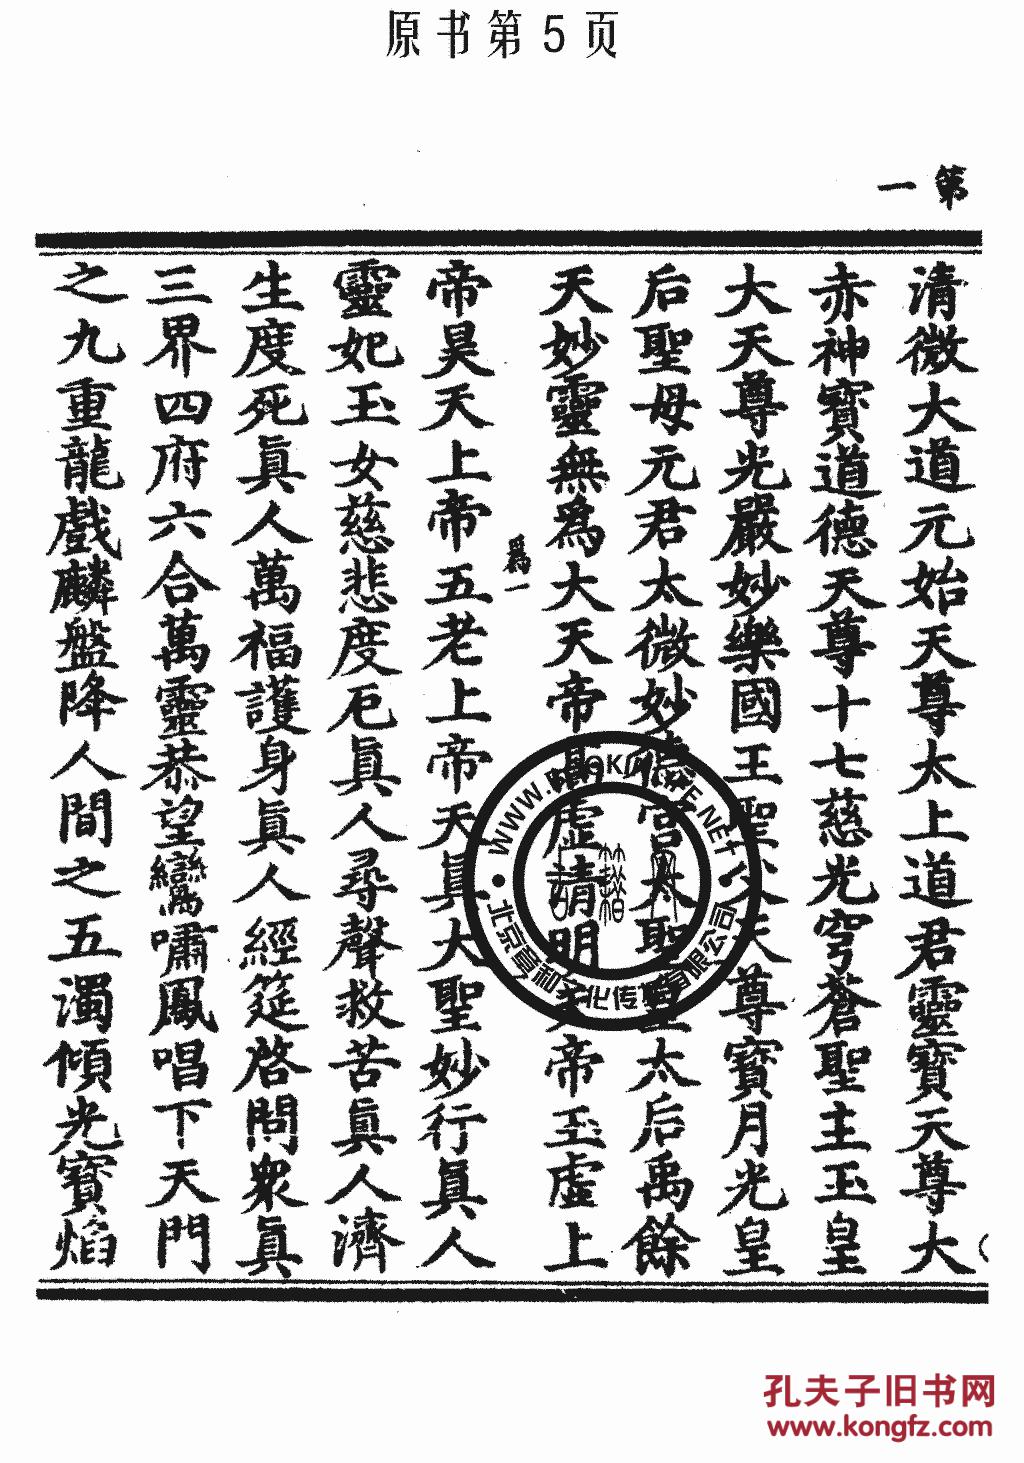 原书第5页
第一
清微大道元始天尊太上道君靈寶天尊大
赤神寶道德天尊十七慈光穹蒼聖主玉皇
大天尊光嚴妙樂國王聖父天尊寶月光皇
后聖母元君太微妙德宮太聖皇太后禹餘
天妙靈無爲大天帝虛清明帝玉虛上
爲一
帝昊天上帝五老上帝天真大聖妙行眞人
靈妃玉女慈悲度厄眞人尋聲救苦眞人濟
生度死眞人萬福護身眞人經筵啓問衆眞
三界四府六合萬靈恭望鸞嘯鳳唱下天門
之九重龍戲麟盤降人間之五濁傾光寶焰
WWW.BOOKINLIFE.NET
北京
化传
有限公司
孔夫子旧书网
www.kongfz.com